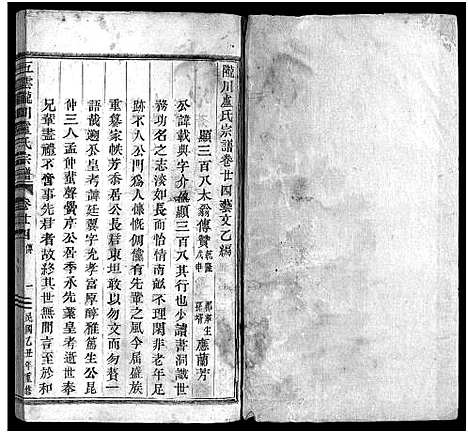 隴川盧氏宗譜卷廿四藝文乙編
顯三百八木翁傳贊 乾隆戊申 郡庠生孫壻應蘭芳
公諱載典字介 顯三百八其行也少讀書洞識世
務功名之志淡如長而怡情南畝不理閑非老年足
跡不入公門為人慷慨倜儻有先輩之風今屆盛族
重纂家帙芳忝居公長君東坦敢以勿文而勿贅一
語哉遡公皇考諱廷翼字允孝富厚醇雅篤生公昆
仲三人孟仲蜚聲黌序公居季承先業皇考逝世奉
兄輩盡禮不啻事先君者故終其世無間言至於和
五雲隴川盧氏宗譜
卷廿四
傳
一
民國乙丑年重修